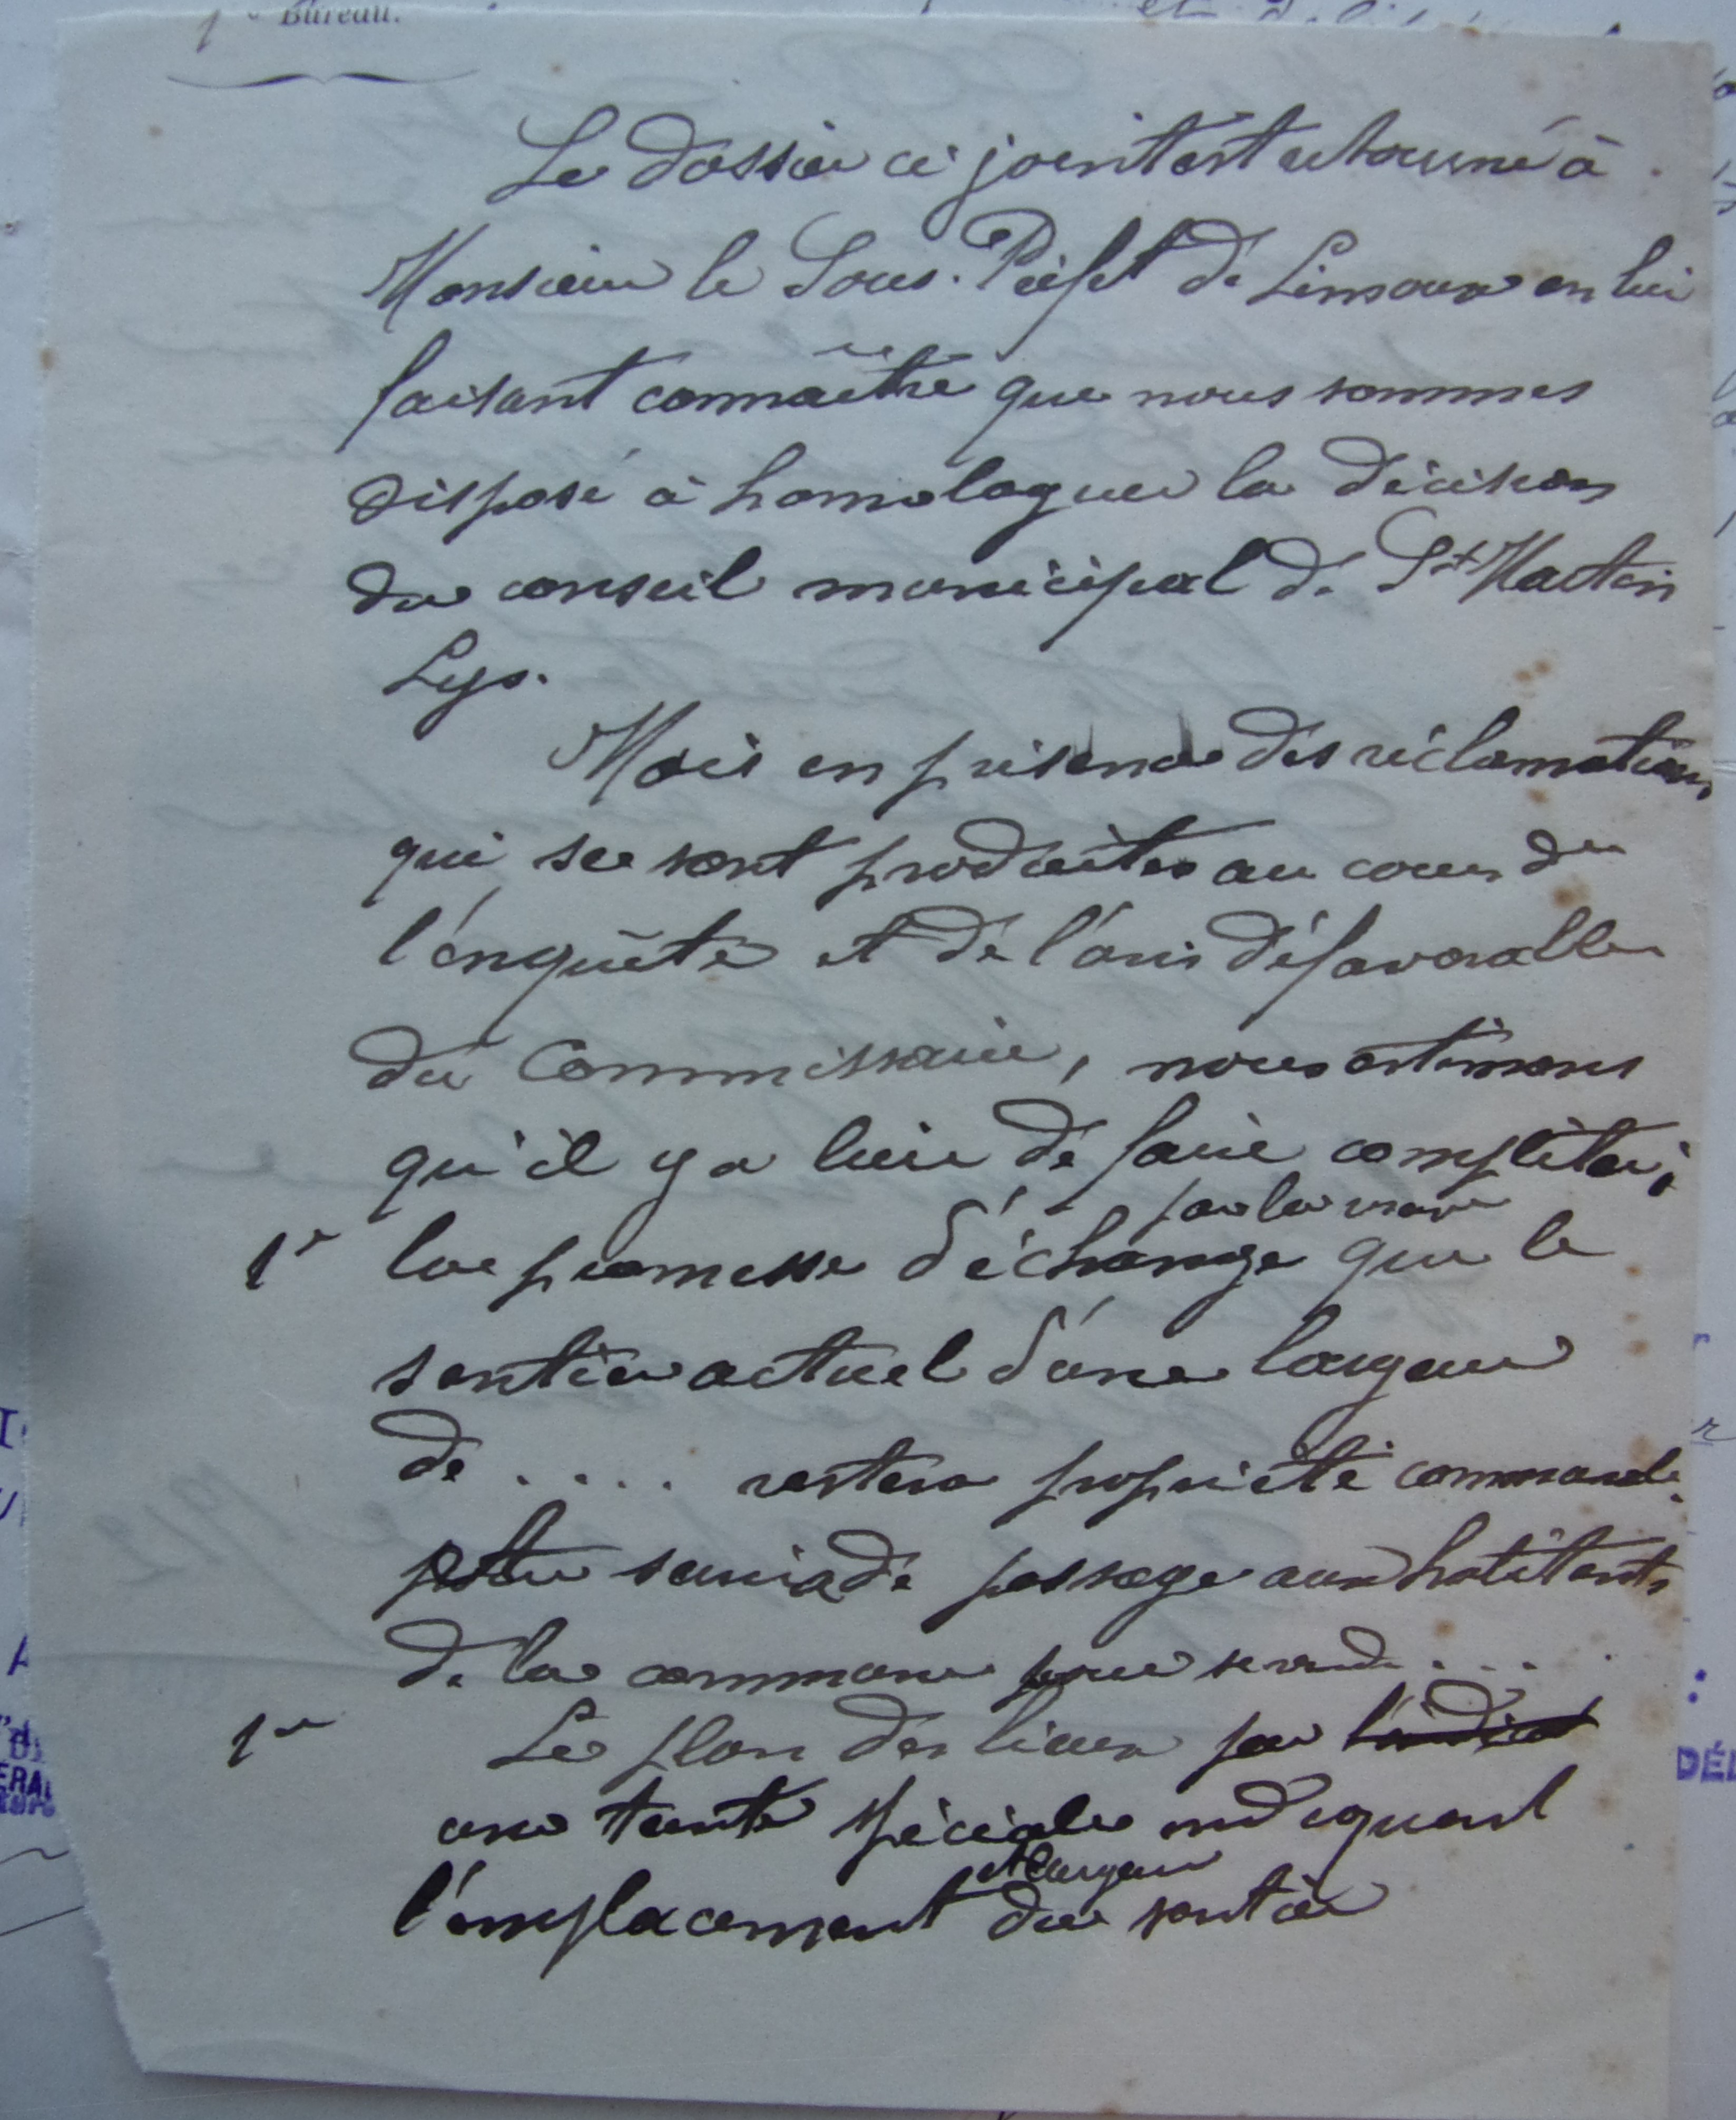 Bureau.
Le dossier ci joint est retourné à
Monsieur le Sous-Préfet de Limoux en lui
faisant connaître que nous sommes
disposé à homologuer la décision
du conseil municipal de St Martin
Lys.
Mais en présence des réclamations
qui se sont produites au cours de
l'enquête et de l'avis défavorable
du Commissaire, nous estimons
qu'il y a lieu de faire compléter;
par la
1° la promesse d'échange que le
sentier actuel d'une largeur
de .... restera propriété communale
servira de passage aux habitants
de la commune pour se rendre ....
1° Le plan des lieux par l'indicat
une teinte spéciale indiquant
et largeur
l'emplacement du sentier